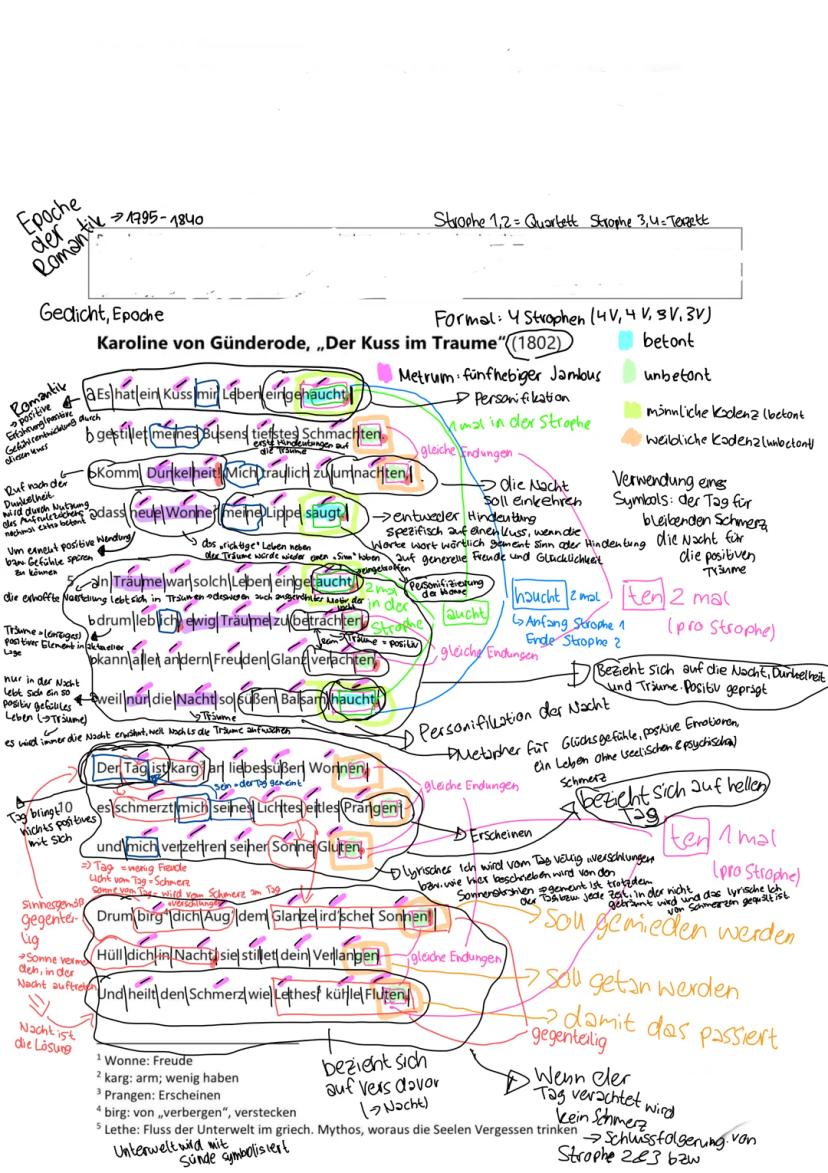 Epoche
der
Romantik → 1795 - 1840
Strophe 1,2 = Quartett Strophe 3,4 = Terzett
Gedicht, Epoche
Formal: 4 Strophen (4V, 4V, 3V, 3V)
Karoline von Günderode, „Der Kuss im Traume“ (1802)
betont
unbetont
männliche Kadenz (betont)
weibliche Kadenz (unbetont)
Metrum: fünfhebiger Jambus
Romantik
→ positive
a Es hat ein Kuss mir Leben eingehaucht,
Personifikation
1 mal in der Strophe
b gestillet meines Busens tiefstes Schmachten,
gleiche Endungen
erste Hindeutungen auf
die Träume
b Komm, Dunkelheit! Mich traulich zu umnachten,
die Nacht
soll einkehren
Ruf nach der
Dunkelheit
wird durch Nutzung
des Aufrufezeichens
nochmal extra betont
a dass neue Wonne¹ meine Lippe saugt.
→ entweder Hindeutung
spezifisch auf einen Kuss, wenn die
Worte wort wörtlich gemeint sind oder Hindeutung
auf generelle Freude und Glücklichkeit
Um erneut positive Wendung
bzw. Gefühle spüren
zu können
das "richtige" Leben neben
der Träume würde wieder einen "Sinn" haben
Verwendung eines
Symbols: der Tag für
bleibenden Schmerz,
die Nacht für
die positiven
Träume
5 a In Träume war solch Leben eingetaucht,
2 mal
in der
Strophe
Personifizierung
der Träume
die erhoffte Vorstellung lebt sich in Träumen
b drum leb ich, ewig Träume zu betrachten,
aucht
haucht 2 mal
↳ Anfang Strophe 1
Ende Strophe 2
ten 2 mal
(pro Strophe)
Träume = (einziges)
positives Element in aktueller
Lage
Träume = positiv
b kann aller andern Freuden Glanz verachten,
gleiche Endungen
nur in der Nacht
lebt sich ein so
positiv gefülltes
Leben (→ Träume)
a weil nur die Nacht so süßen Balsam haucht.
↳ Träume
Bezieht sich auf die Nacht, Dunkelheit
und Träume. Positiv geprägt
Personifikation der Nacht
es wird immer die Nacht erwähnt, weil Nachts die Träume auftauchen
Metapher für Glücksgefühle, positive Emotionen,
ein Leben ohne seelischen & psychischen
Schmerz
Der Tag ist karg² an liebesüßen Wonnen,
sein = der Tag gemeint
gleiche Endungen
bezieht sich auf hellen
Tag
Tag bringt
nichts positives
mit sich
10 es schmerzt mich seines Lichtes eitles Prangen³
Erscheinen
und mich verzehren seiner Sonne Gluten.
ten 1 mal
(pro Strophe)
⇒ Tag = wenig Freude
Licht vom Tag = Schmerz
Sonne vom Tag = wird vom Schmerz am Tag
verschlungen
lyrisches Ich wird vom Tag völlig verschlungen
bzw. wie hier beschrieben wird von den
Sonnenstrahlen → gemeint ist trotzdem
der Tag bzw jede Zeit, in der nicht
geträumt wird und das lyrische Ich
von Schmerzen gequält ist
sinnesgemäß
gegenteilig
→ Sonne vermeiden, in der
Nacht auftreten
Drum birg⁴ dich Aug' dem Glanze ird'scher Sonnen!
soll gemieden werden
Hüll dich in Nacht, sie stillet dein Verlangen
gleiche Endungen
soll getan werden
Und heilt den Schmerz, wie Lethes⁵ kühle Fluten.
damit das passiert
gegenteilig
Nacht ist
die Lösung
bezieht sich
auf Vers davor
(→ Nacht)
Wenn der
Tag verachtet wird
kein Schmerz
→ Schlussfolgerung von
Strophe 2 & 3 bzw
¹ Wonne: Freude
² karg: arm; wenig haben
³ Prangen: Erscheinen
⁴ birg: von „verbergen“, verstecken
⁵ Lethe: Fluss der Unterwelt im griech. Mythos, woraus die Seelen Vergessen trinken
Unterwelt wird mit
Sünde symbolisiert